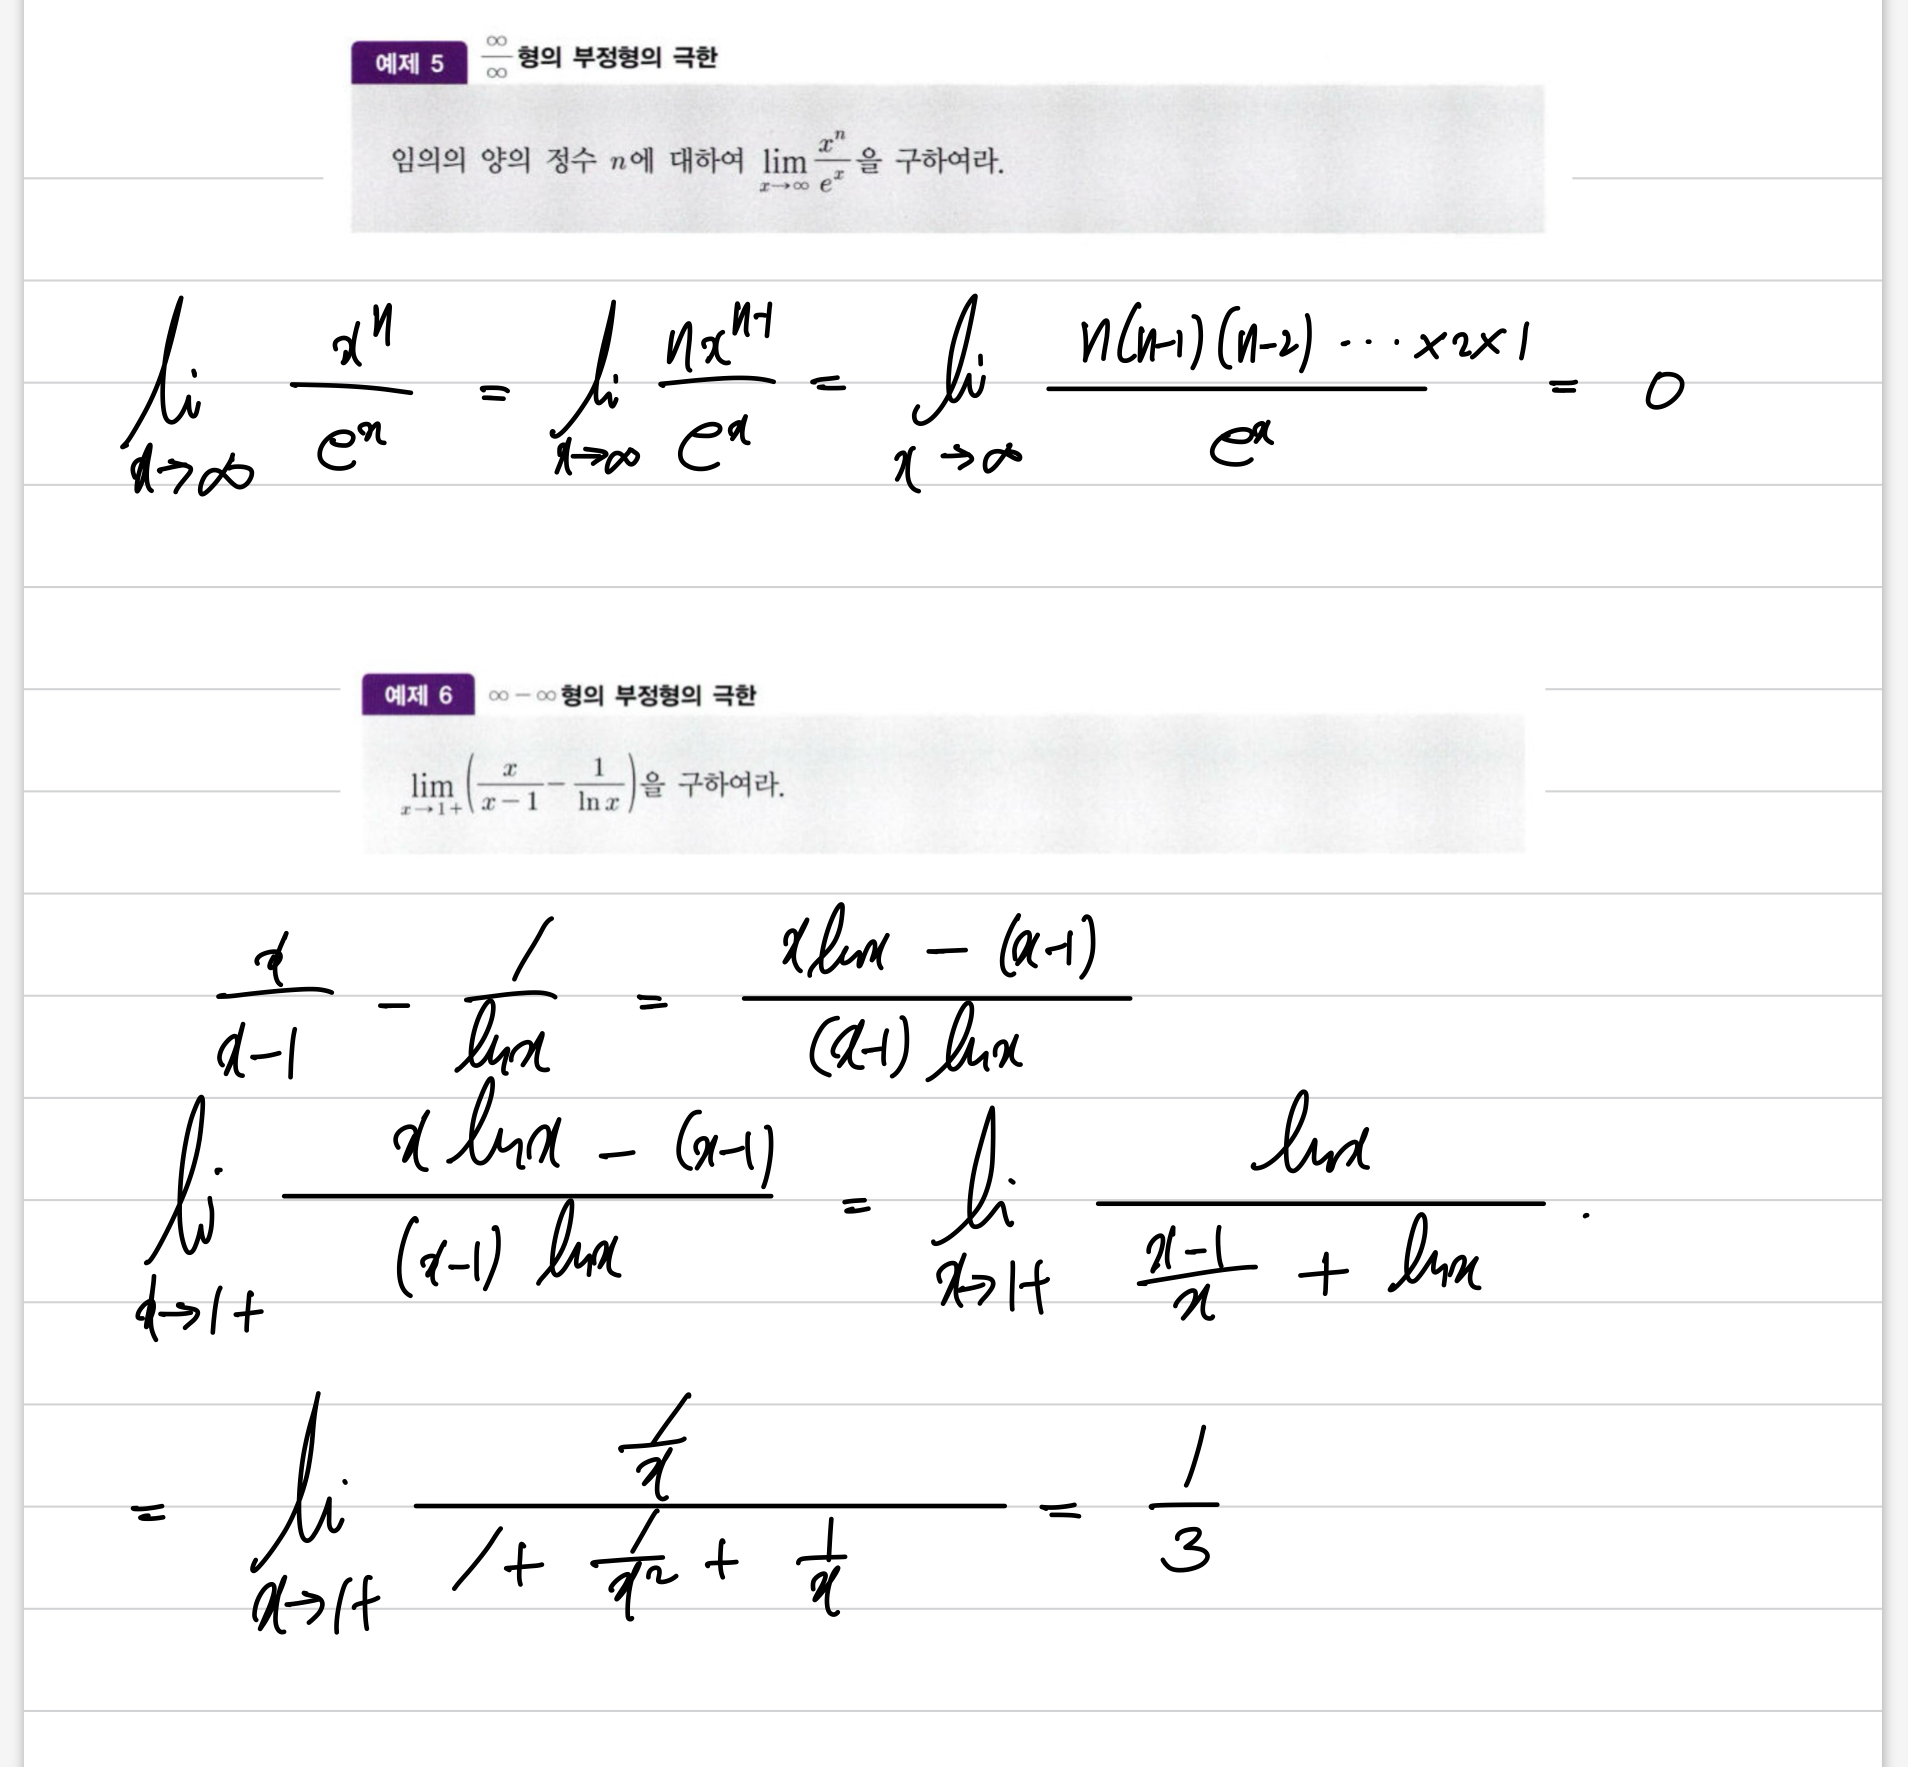 예제 5 ∞/∞ 형의 부정형의 극한
임의의 양의 정수 n에 대하여 lim_{x→∞} x^n/e^x 을 구하여라.
li_{x→∞} x^n/e^x = li_{x→∞} nx^{n-1}/e^x = li_{x→∞} n(n-1)(n-2) ⋯ ×2×1/e^x = 0
예제 6 ∞-∞ 형의 부정형의 극한
lim_{x→1+} (x/(x-1) - 1/ln x) 을 구하여라.
x/(x-1) - 1/lnx = (x lnx - (x-1))/((x-1) lnx)
li_{x→1+} (x lnx - (x-1))/((x-1) lnx) = li_{x→1+} lnx/((x-1)/x + lnx) .
= li_{x→1+} (1/x)/(1 + 1/x^2 + 1/x) = 1/3